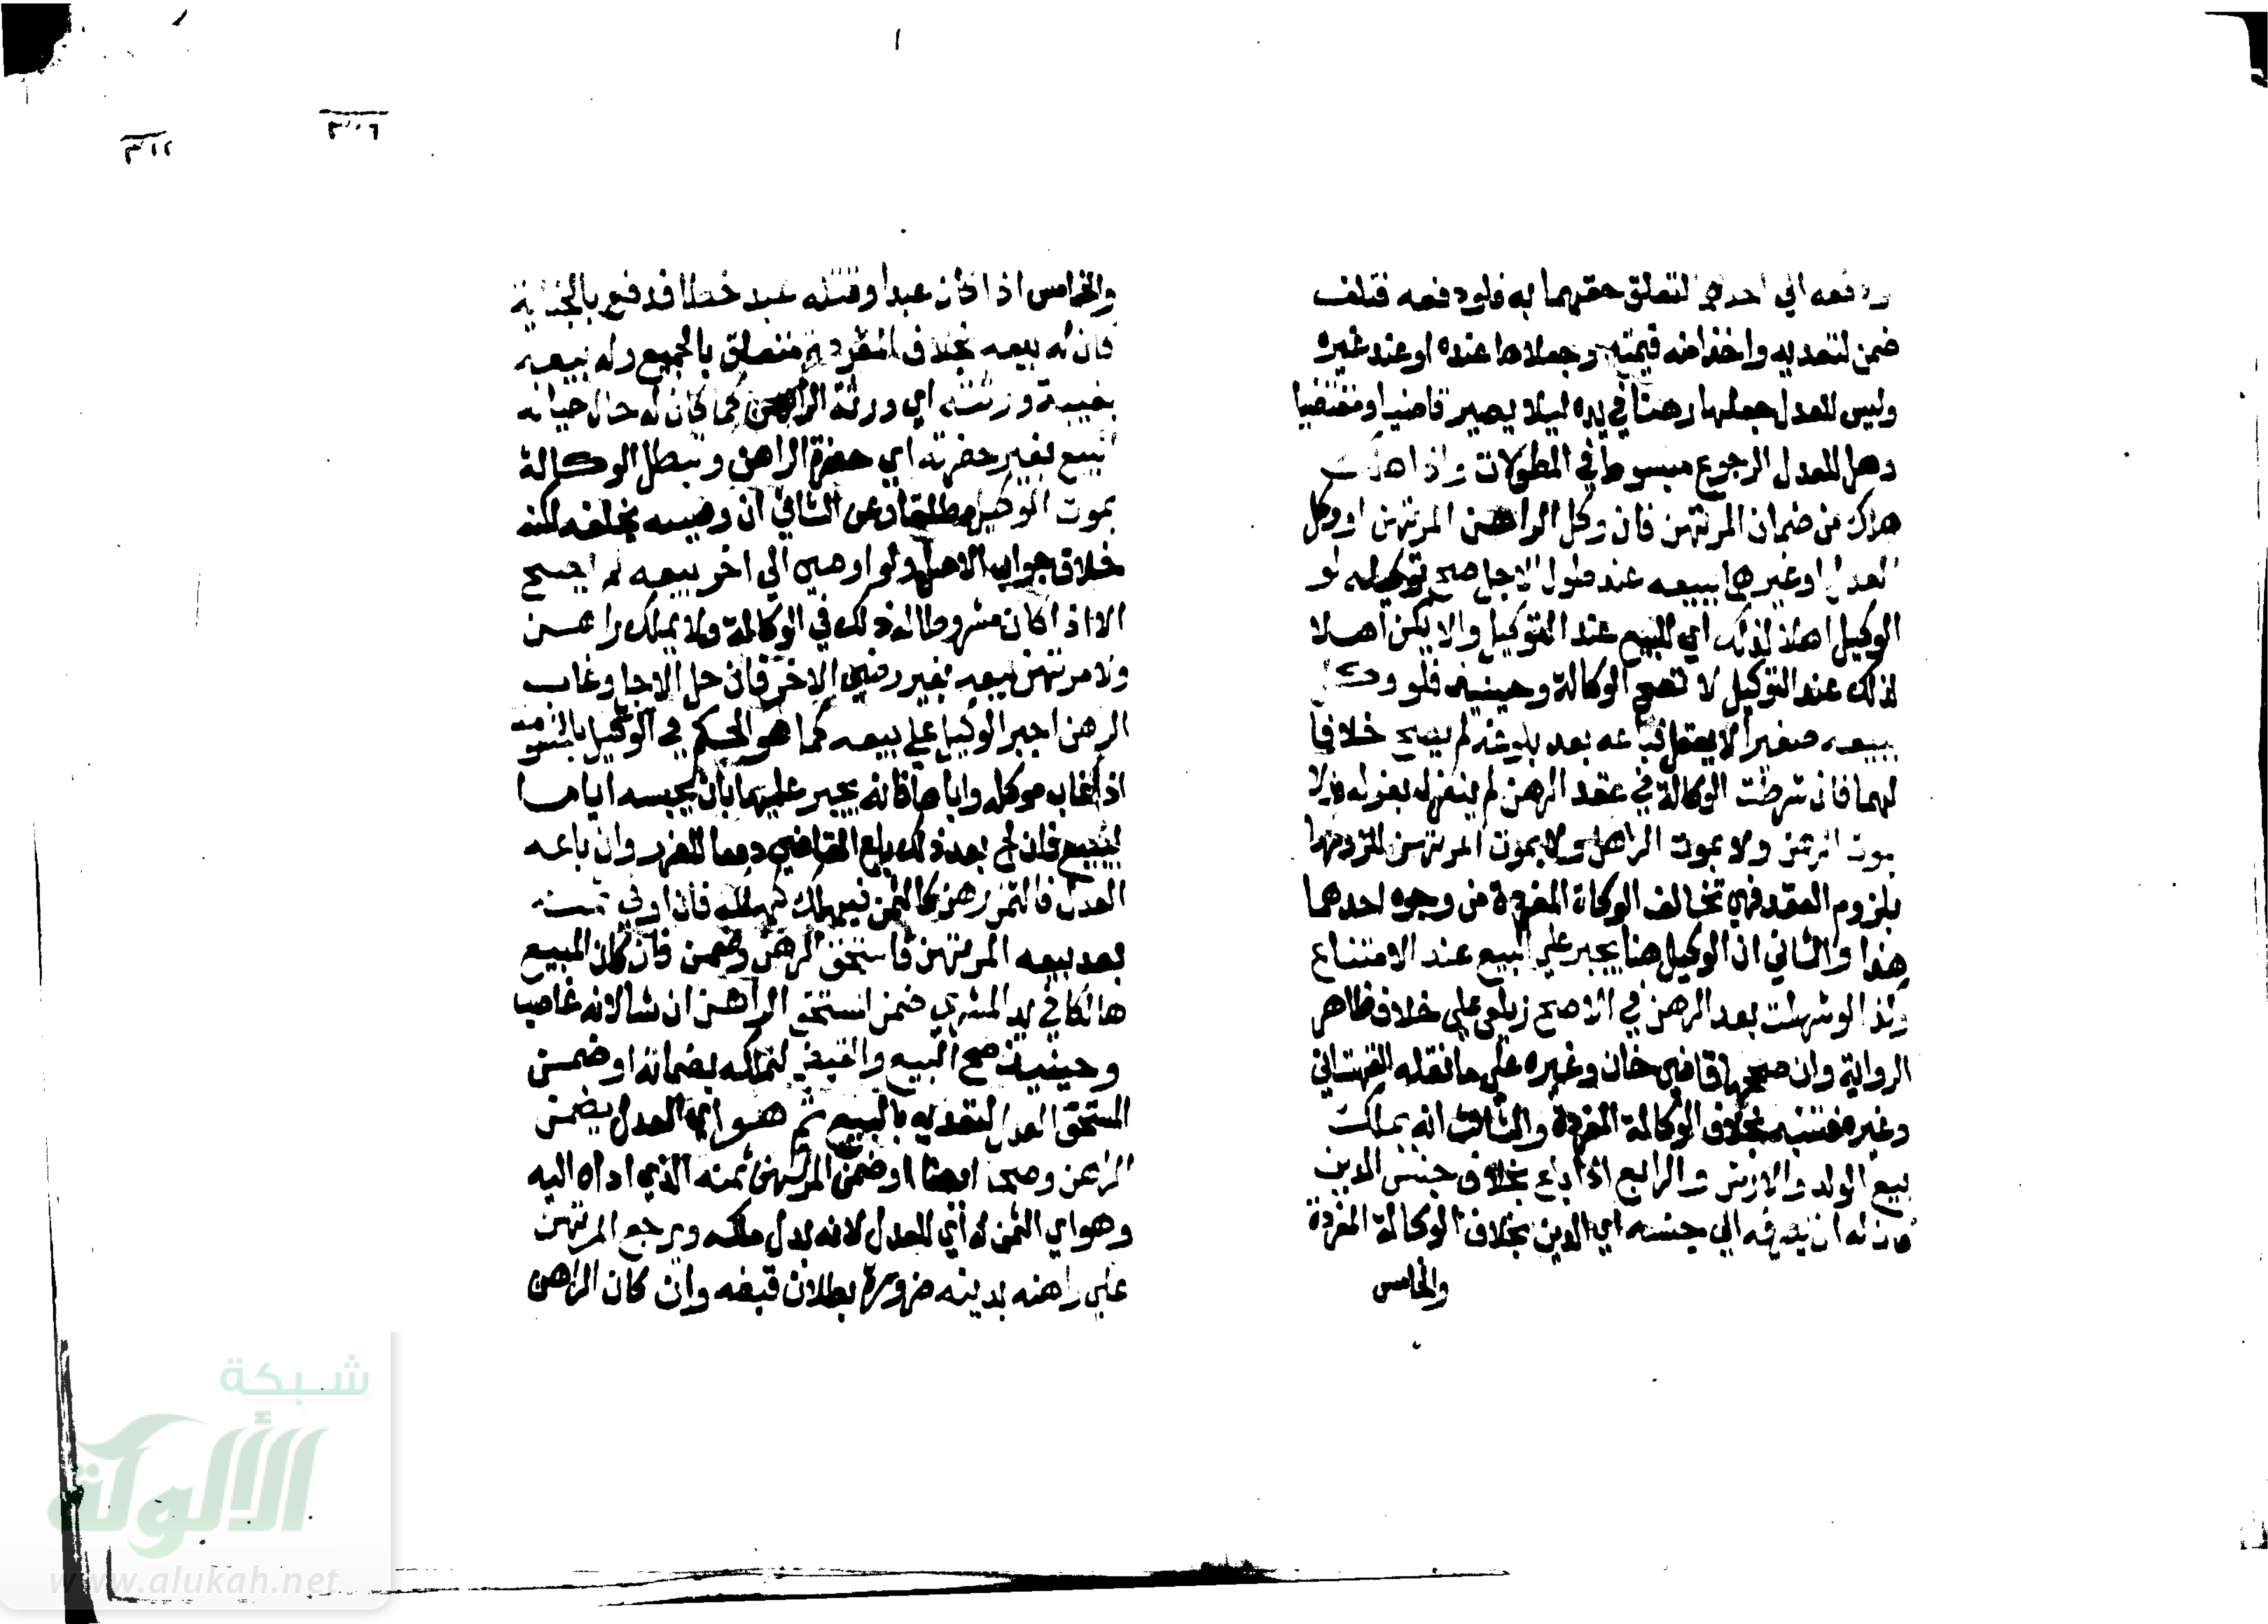 ودفعه الي احدهما لتعلق حقهما به فلو دفعه فتلف
ضمن لتعديه واخذا منه قيمته وجعلاها عنده او عند غيره
وليس للعدل جعلها رهنا في يده ليلا يصير قاضيا ومقتضيا
وهل للعدل الرجوع مبسوط في المطولات واذا هلك
هلك من ضمان المرتهن فان وكل الراهن المرتهن او وكل
العدل او غيرهما ببيعه عند حلول الاجل صح توكيله لو
الوكيل اهلا لذلك اي للبيع عند التوكيل والا يكن اهلا
لذلك عند التوكيل لا تصح الوكالة وحينيذ فلو وكل
ببيعه صغيرا لا يعقل فباعه بعد بلوغه لم يصح خلافا
لهما فان شرطت الوكالة في عقد الرهن لم ينعزل بعزله ولا
بموت الراهن ولا بموت المرتهن للزومها
بلزوم العقد فهي تخالف الوكالة المفردة من وجوه احدها
هذا والثاني ان الوكيل هنا يجبر علي البيع عند الامتناع
وكذا لو شرطت بعد الرهن في الاصح زيلعي علي خلاف ظاهر
الرواية وان صححها قاضي خان وغيره علي ما نقله القهستاني
وغيره فتنبه بخلاف الوكالة المفردة والثالث انه يملك
بيع الولد والارش والرابع اذا باع بخلاف جنس الدين
كان له ان يصرفه الي جنسه اي الدين بخلاف الوكالة المفردة
والخامس
والخامس اذا كان عبدا وقتله عبد خطا فدفع بالجناية
كان له بيعه بخلاف المفردة متعلق بالجميع وله بيعه
بغيبة ورثته اي ورثة الراهن كما كان له حال حياته
البيع بغير حضرته اي حضرة الراهن وتبطل الوكالة
بموت الوكيل مطلقا وعن الثاني ان وصيه يخلفه لكنه
خلاف جواب الاصل ولو اوصي الي اخر ببيعه لم يصح
الا اذا كان مشروطا له ذلك في الوكالة ولا يملك راهن
ولا مرتهن بيعه بغير رضي الاخر فان حل الاجل وغاب
الرهن اجبر الوكيل علي بيعه كما هو الحكم في الوكيل بالخصومة
اذا غاب موكله واباها فانه يجبر عليها بان يحبسه اياما
ليبيع فان لج بعد ذلك باع القاضي دفعا للضرر وان باعه
العدل فالثمن رهن كالثمن فيهلك كهلكه فان اوفي ثمنه
بعد بيعه المرتهن فاستحق الرهن وضمن فان كان المبيع
هالكا في يد المشتري ضمن المستحق الراهن ان شا لانه غاصب
وحينيذ صح البيع والقبض لتملكه بضمانه او ضمن
المستحق العدل لتعديه بالبيع ثم هو اي العدل يضمن
الراهن وصحا ايضا او ضمن المرتهن ثمنه الذي اداه اليه
وهو اي الثمن له اي للعدل لانه بدل ملكه ويرجع المرتهن
علي راهنه بدينه ضرورة بطلان قبضه وان كان الراهن
شبكة
الألوكة
www.alukah.net